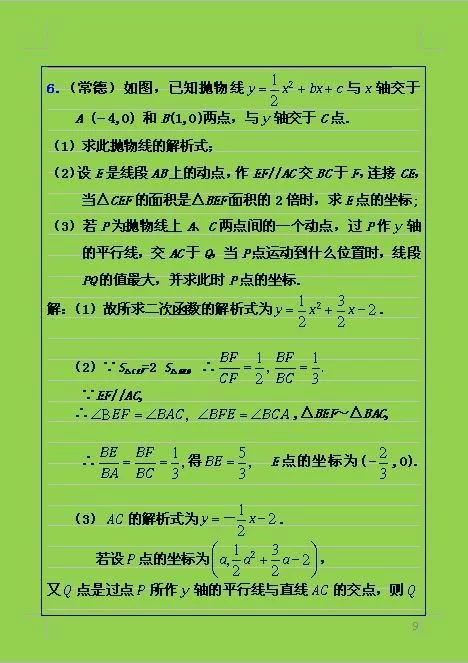 6.（常德）如图，已知抛物线 y=1/2 x²+bx+c 与 x 轴交于
A（-4,0）和 B(1,0)两点，与 y 轴交于 C 点.
(1) 求此抛物线的解析式;
(2) 设 E 是线段 AB 上的动点，作 EF//AC 交 BC 于 F，连接 CE，
当△CEF 的面积是△BEF 面积的 2 倍时，求 E 点的坐标;
(3) 若 P 为抛物线上 A、C 两点间的一个动点，过 P 作 y 轴
的平行线，交 AC 于 Q，当 P 点运动到什么位置时，线段
PQ 的值最大，并求此时 P 点的坐标.
解:(1) 故所求二次函数的解析式为 y=1/2 x²+3/2 x-2.
(2) ∵S△CEF=2 S△BEF, ∴BF/CF=1/2, BF/BC=1/3.
∵EF//AC,
∴∠BEF=∠BAC, ∠BFE=∠BCA, △BEF~△BAC,
∴BE/BA=BF/BC=1/3,得 BE=5/3, E点的坐标为(-2/3,0).
(3) AC 的解析式为 y=-1/2 x-2.
若设 P 点的坐标为(a,1/2 a²+3/2 a-2),
又 Q 点是过点 P 所作 y 轴的平行线与直线 AC 的交点，则 Q
9